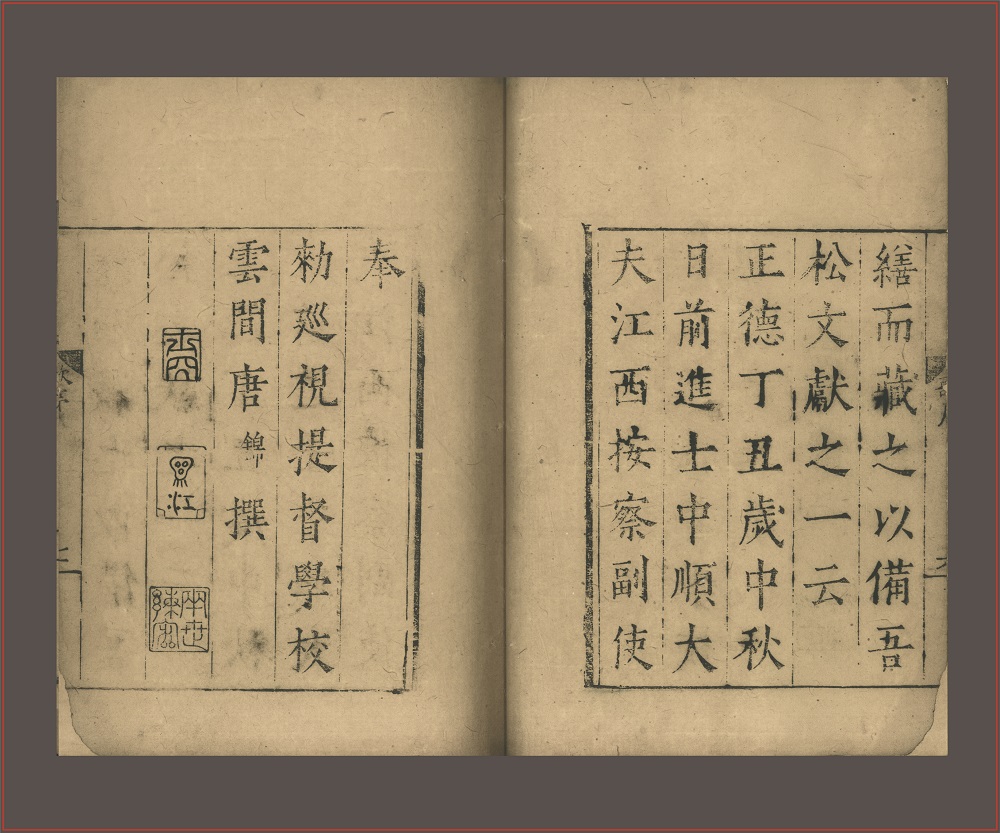 繕而藏之以備吾
松文獻之一云
正德丁丑歲中秋
日前進士中順大
夫江西按察副使
奉
勑廵視提督學校
雲間唐錦撰